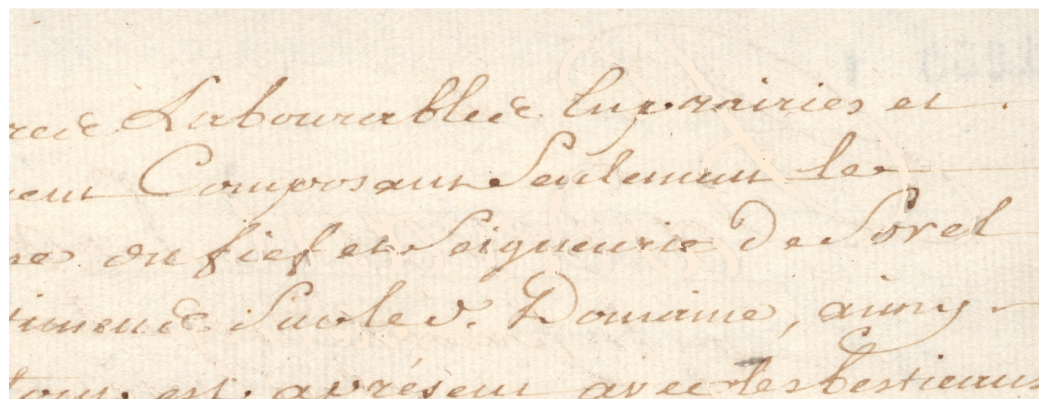 Labourables les prairies et
Composant Seulement le
du fief et Seigneurie De Sorel
Sur led. Domaine, ainsy
tout est. a présent avec les bestiaux